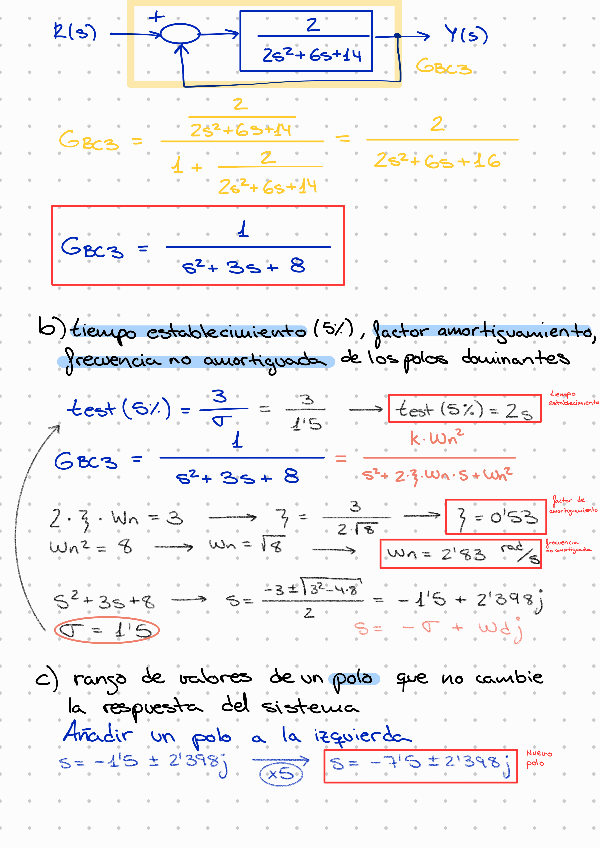 R(s) + 2 / 2s²+6s+14 Y(s)
GBC3
GBC3 = (2 / 2s²+6s+14) / (1 + 2 / 2s²+6s+14) = 2 / 2s²+6s+16
GBC3 = 1 / s²+3s+8
b) tiempo establecimiento (5%), factor amortiguamiento,
frecuencia no amortiguada de los polos dominantes
test (5%) = 3/σ = 3/1'5 → test (5%) = 2s tiempo establecimiento
GBC3 = 1 / s²+3s+8 = k·Wn² / s²+2·ξ·Wn·s+Wn²
2·ξ·Wn = 3 → ξ = 3 / 2√8 → ξ = 0'53 factor de amortiguamiento
Wn² = 8 → Wn = √8 → Wn = 2'83 rad/s frecuencia no amortiguada
s²+3s+8 → s = -3±√3²-4·8 / 2 = -1'5 + 2'398j
σ = 1'5 s = -σ + Wdj
c) rango de valores de un polo que no cambie
la respuesta del sistema
Añadir un polo a la izquierda
s = -1'5 ± 2'398j → x5 s = -7'5 ± 2'398j Nuevo polo